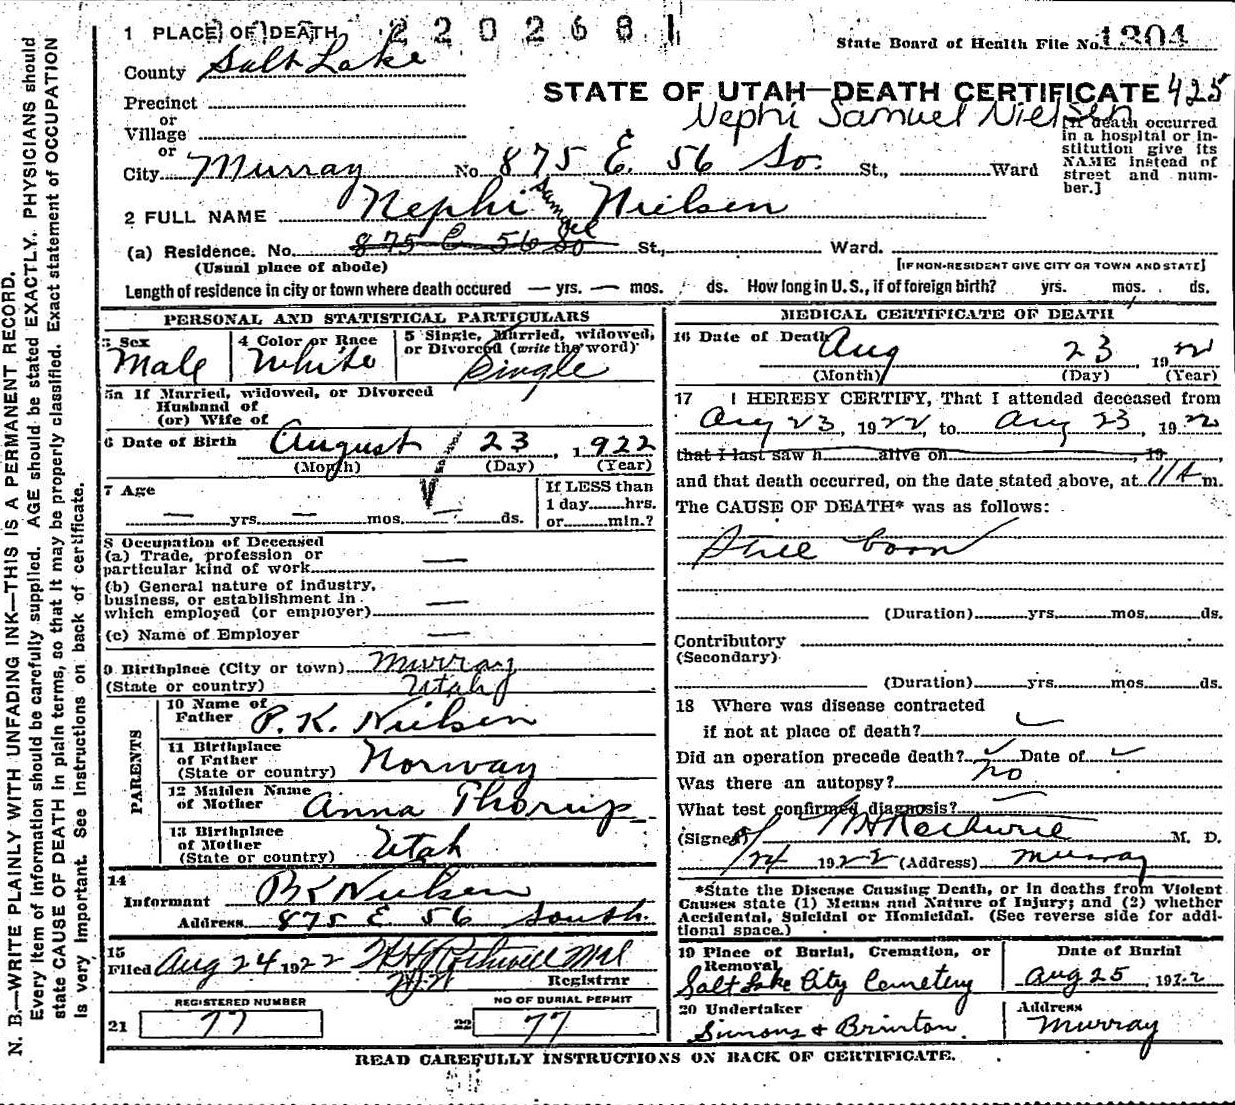 1 PLACE OF DEATH 2 2 0 2 6 8 1
State Board of Health File No. 1304
County Salt Lake
STATE OF UTAH—DEATH CERTIFICATE 425
Precinct
or
Village
or
Nephi Samuel Nielsen
[If death occurred in a hospital or institution give its NAME instead of street and number.]
City Murray No. 875 E. 56 So. St., Ward
2 FULL NAME Nephi Samuel Nielsen
(a) Residence. No. 875 E 56 So St., Ward.
(Usual place of abode) [IF NON-RESIDENT GIVE CITY OR TOWN AND STATE]
Length of residence in city or town where death occured — yrs. — mos. ds. How long in U.S., if of foreign birth? yrs. mos. ds.
PERSONAL AND STATISTICAL PARTICULARS
3 Sex
Male
4 Color or Race
White
5 Single, Married, widowed,
or Divorced (write the word)
Single
5a If Married, widowed, or Divorced
Husband of
(or) Wife of
6 Date of Birth August 23, 1922
(Month) (Day) (Year)
7 Age
— yrs. — mos. — ds.
If LESS than
1 day hrs.
or min.?
8 Occupation of Deceased
(a) Trade, profession or
particular kind of work —
(b) General nature of industry,
business, or establishment in
which employed (or employer) —
(c) Name of Employer —
9 Birthplace (City or town) Murray
(State or country) Utah
PARENTS
10 Name of
Father P. K. Nielsen
11 Birthplace
of Father
(State or country) Norway
12 Maiden Name
of Mother Anna Thorup
13 Birthplace
of Mother
(State or country) Utah
14
Informant P K Nielsen
Address 875 E 56 South.
15
Filed Aug 24 1922 H H Rothwell Md
Registrar
REGISTERED NUMBER
21 77
NO OF BURIAL PERMIT
22 77
MEDICAL CERTIFICATE OF DEATH
16 Date of Death Aug 23 1922
(Month) (Day) (Year)
17 I HEREBY CERTIFY, That I attended deceased from
Aug 23, 1922, to Aug 23, 1922
that I last saw h alive on , 19 ,
and that death occurred, on the date stated above, at 11 A m.
The CAUSE OF DEATH* was as follows:
Still born
(Duration) yrs. mos. ds.
Contributory
(Secondary)
(Duration) yrs. mos. ds.
18 Where was disease contracted
if not at place of death?
Did an operation precede death? Date of
Was there an autopsy? no
What test confirmed diagnosis?
(Signed) H H Rothwell M. D.
8/24 1922 (Address) Murray
*State the Disease Causing Death, or in deaths from Violent
Causes state (1) Means and Nature of Injury; and (2) whether
Accidental, Suicidal or Homicidal. (See reverse side for addi-
tional space.)
19 Place of Burial, Cremation, or
Removal
Salt Lake City Cemetery
Date of Burial
Aug 25, 1922
20 Undertaker
Simons & Brinton.
Address
Murray
READ CAREFULLY INSTRUCTIONS ON BACK OF CERTIFICATE.
N. B.—WRITE PLAINLY WITH UNFADING INK—THIS IS A PERMANENT RECORD.
Every item of information should be carefully supplied. AGE should be stated EXACTLY. PHYSICIANS should
state CAUSE OF DEATH in plain terms, so that it may be properly classified. Exact statement of OCCUPATION
is very important. See Instructions on back of certificate.